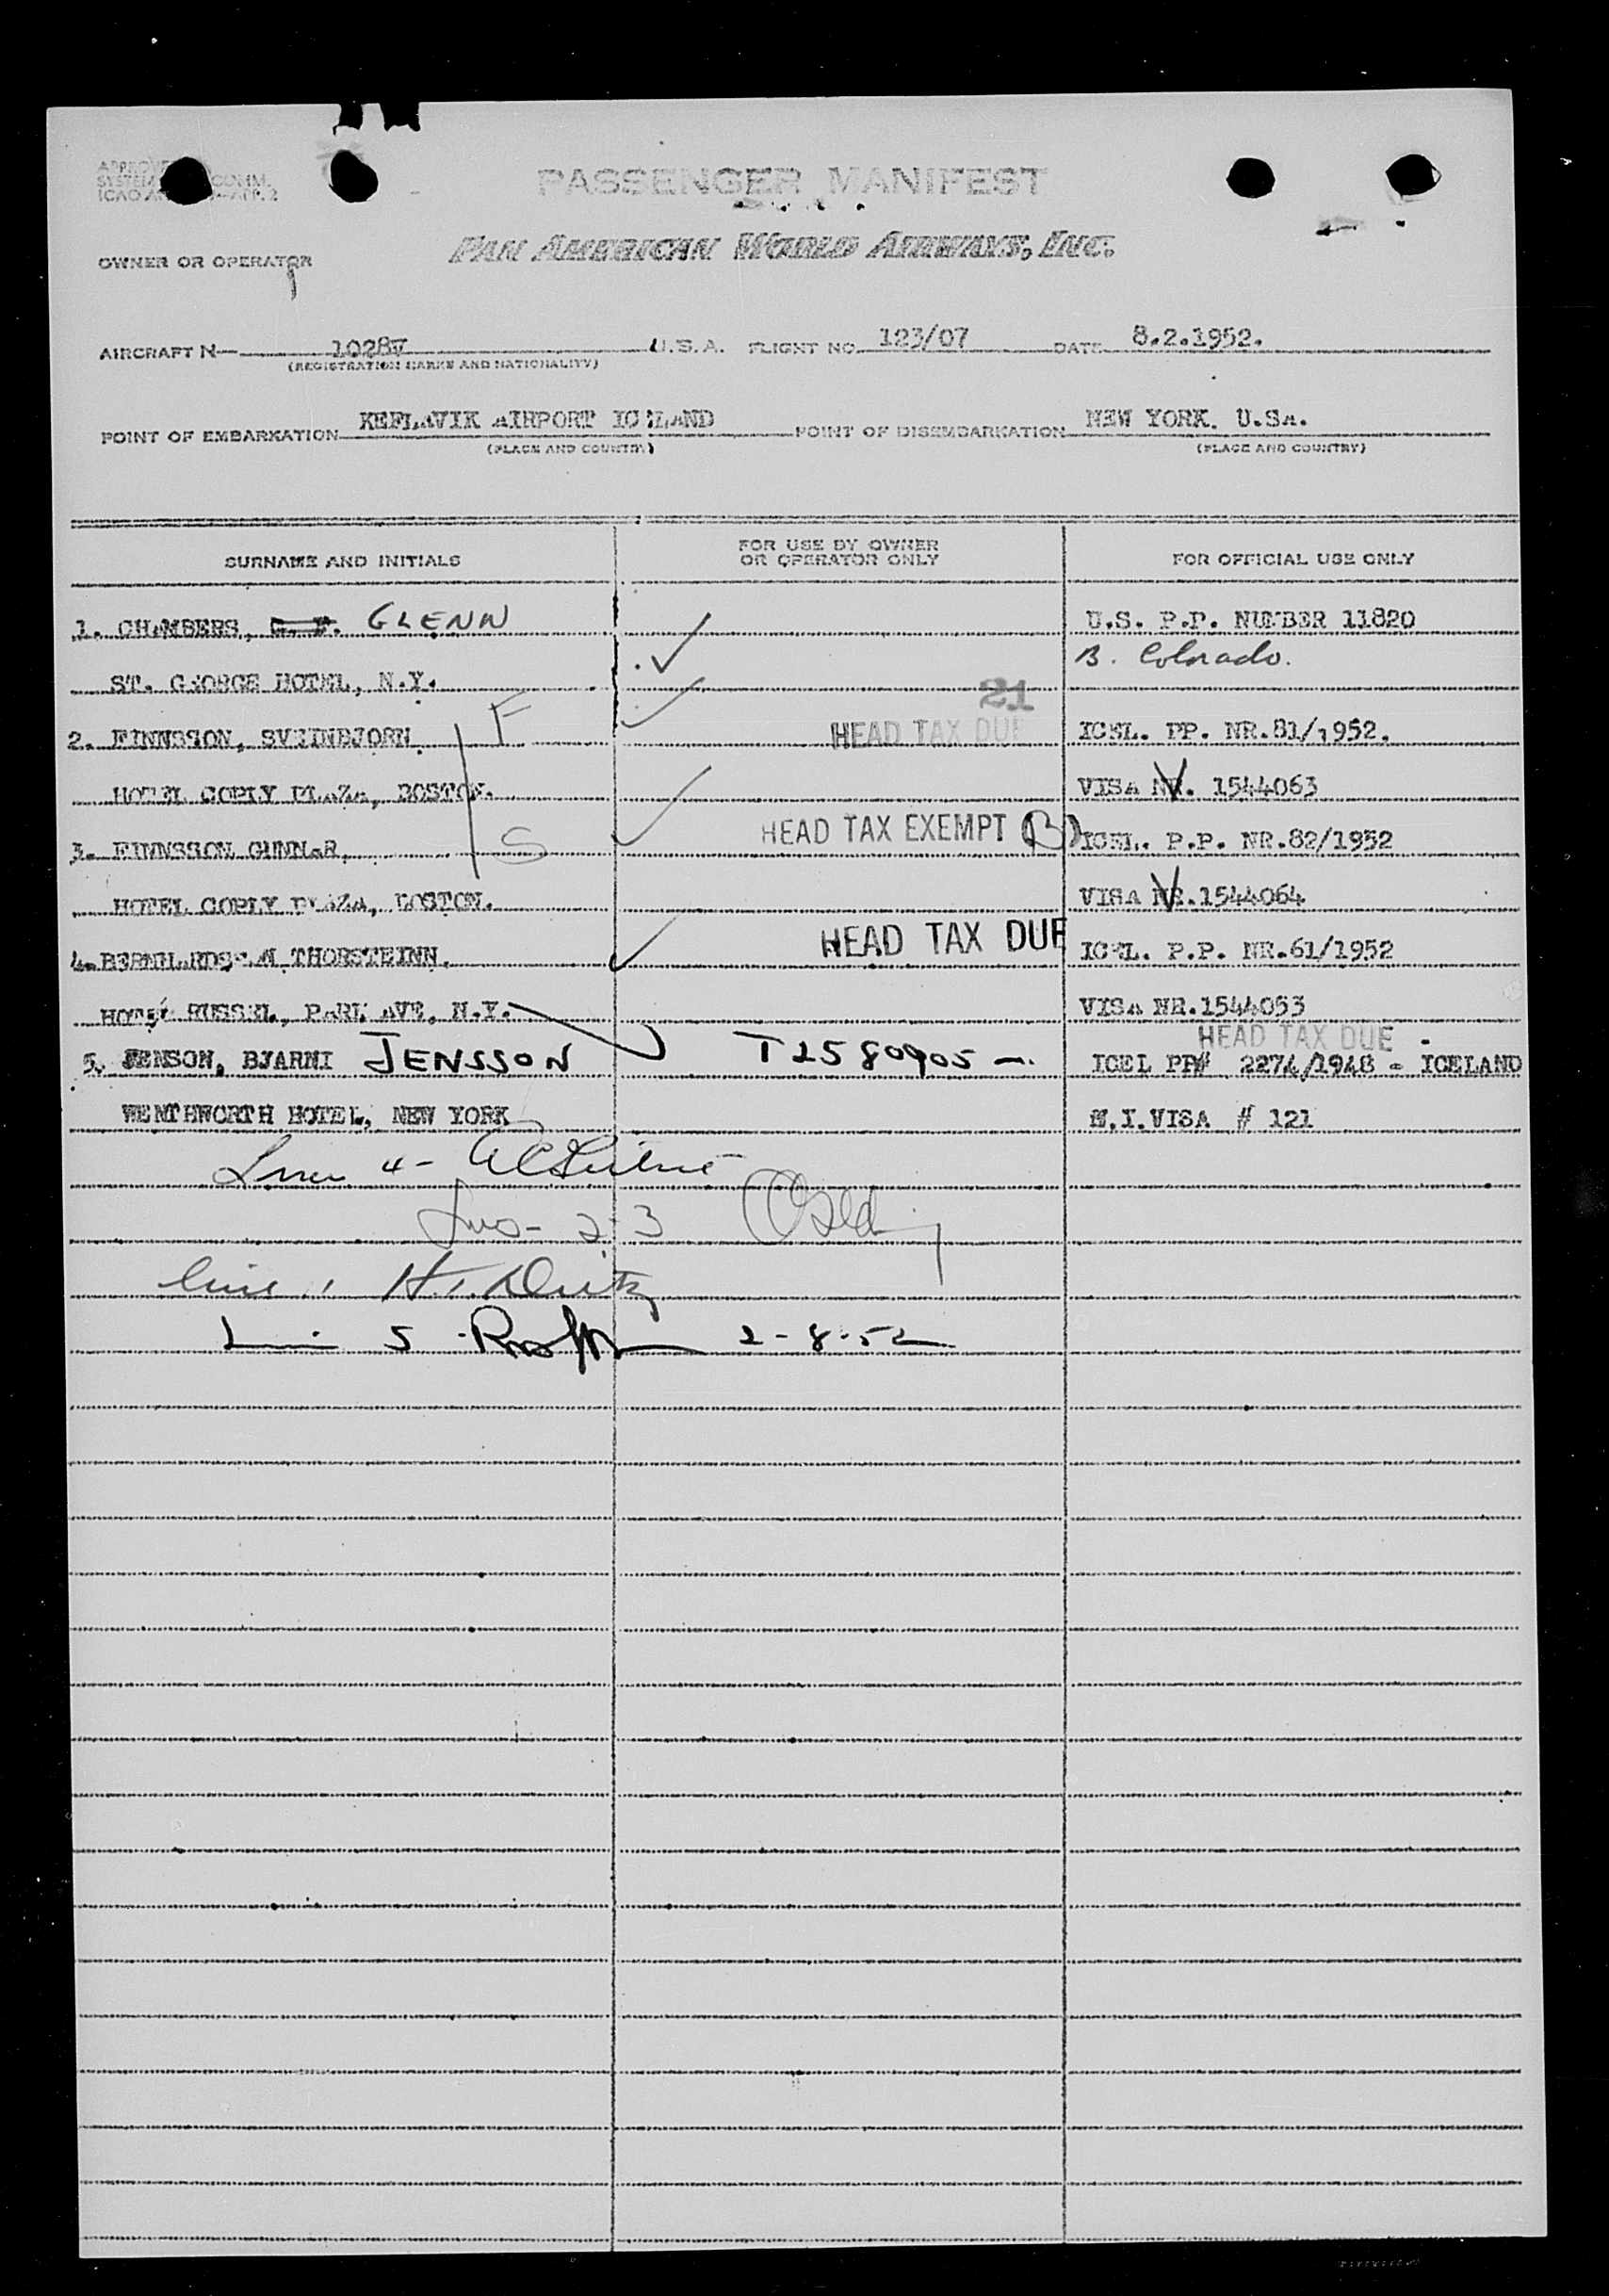 PASSENGER MANIFEST
PAN AMERICAN WORLD AIRWAYS, INC.
OWNER OR OPERATOR
AIRCRAFT N— 1028V U.S.A. FLIGHT NO. 123/07 DATE 8.2.1952.
(REGISTRATION MARKS AND NATIONALITY)
POINT OF EMBARKATION KEFLAVIK AIRPORT ICELAND POINT OF DISEMBARKATION NEW YORK. U.S.A.
(PLACE AND COUNTRY) (PLACE AND COUNTRY)
SURNAME AND INITIALS FOR USE BY OWNER OR OPERATOR ONLY FOR OFFICIAL USE ONLY
1. CHAMBERS, GLENN U.S. P.P. NUMBER 11820
B. Colorado.
ST. GEORGE HOTEL, N.Y.
21
2. FINNSSON, SVEINBJORN. F HEAD TAX DUE ICEL. PP. NR.81/1952.
HOTEL COPLY PLAZA, BOSTON. VISA NR. 1544063
3. FINNSSON GUNNAR. S HEAD TAX EXEMPT (B) ICEL. P.P. NR.82/1952
HOTEL COPLY PLAZA, BOSTON. VISA NR.1544064
4. THORSTEINN. HEAD TAX DUE ICEL. P.P. NR.61/1952
HOTEL RUSSEL, PARK AVE, N.Y. VISA NR.1544053
HEAD TAX DUE
5. JENSON, BJARNI JENSSON T2580905 —. ICEL PP# 2274/1948 - ICELAND
WENTHWORTH HOTEL, NEW YORK N.I.VISA # 121
4-
2-3
Line 1
5 2-8-52